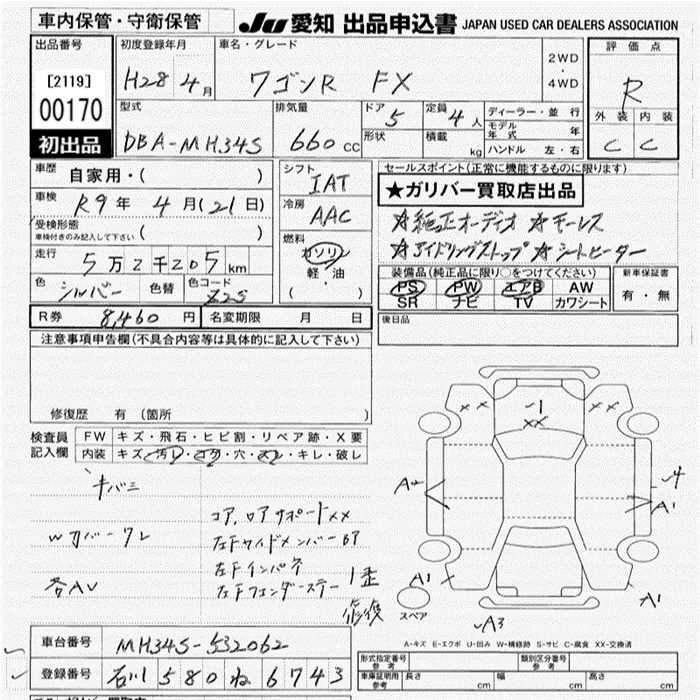 車内保管・守衛保管
JU 愛知 出品申込書 JAPAN USED CAR DEALERS ASSOCIATION
出品番号 初度登録年月 車名・グレード 2WD・4WD 評価点
[2119] H28年4月 ワゴンR FX R
00170 型式 排気量 ドア 5 定員 4人 ディーラー・並行 外装 内装
初出品 DBA-MH34S 660cc 形状 積載 kg モデル年式 年 C C
ハンドル 左・右
車歴 自家用・( ) シフト IAT セールスポイント(正常に機能するものに限ります)
車検 R9年4月(21日) 冷房 AAC ★ガリバー買取店出品
受検形態 ( ) ☆純正オーディオ ☆キーレス
車検付きのみ記入して下さい
走行 5万2千205km 燃料 ガソリン ☆アイドリングストップ ☆シートヒーター
軽・油
( )
色 シルバー 色替 色コード Z2S 装備品(純正品に限り○をつけてください) 新車保証書
PS PW エアB AW 有・無
SR ナビ TV カワシート
R券 8,460円 名変期限 月 日 後日品
注意事項申告欄(不具合内容等は具体的に記入して下さい)
修復歴 有(箇所 )
検査員 FW キズ・飛石・ヒビ割・リペア跡・X要
記入欄 内装 キズ・汚レ・コゲ・穴・スレ・キレ・破レ
XX XX
-1
XX
A2 A1
キバミ
コア,ロアサポートXX
Wカバーワレ 左Fサイドメンバー
左Fインパネ
各AU 左Fフェンダーステー 修復
A1 A1
スペア
A3
車台番号 MH34S-532062
A-キズ E-エクボ U-凹み W-補修跡 S-サビ C-腐食 XX-交換済
登録番号 石川 580 ね 6743
形式指定番号 参考 類別区分番号 参考
車庫証明用 参考 長さ cm 幅 cm 高さ cm